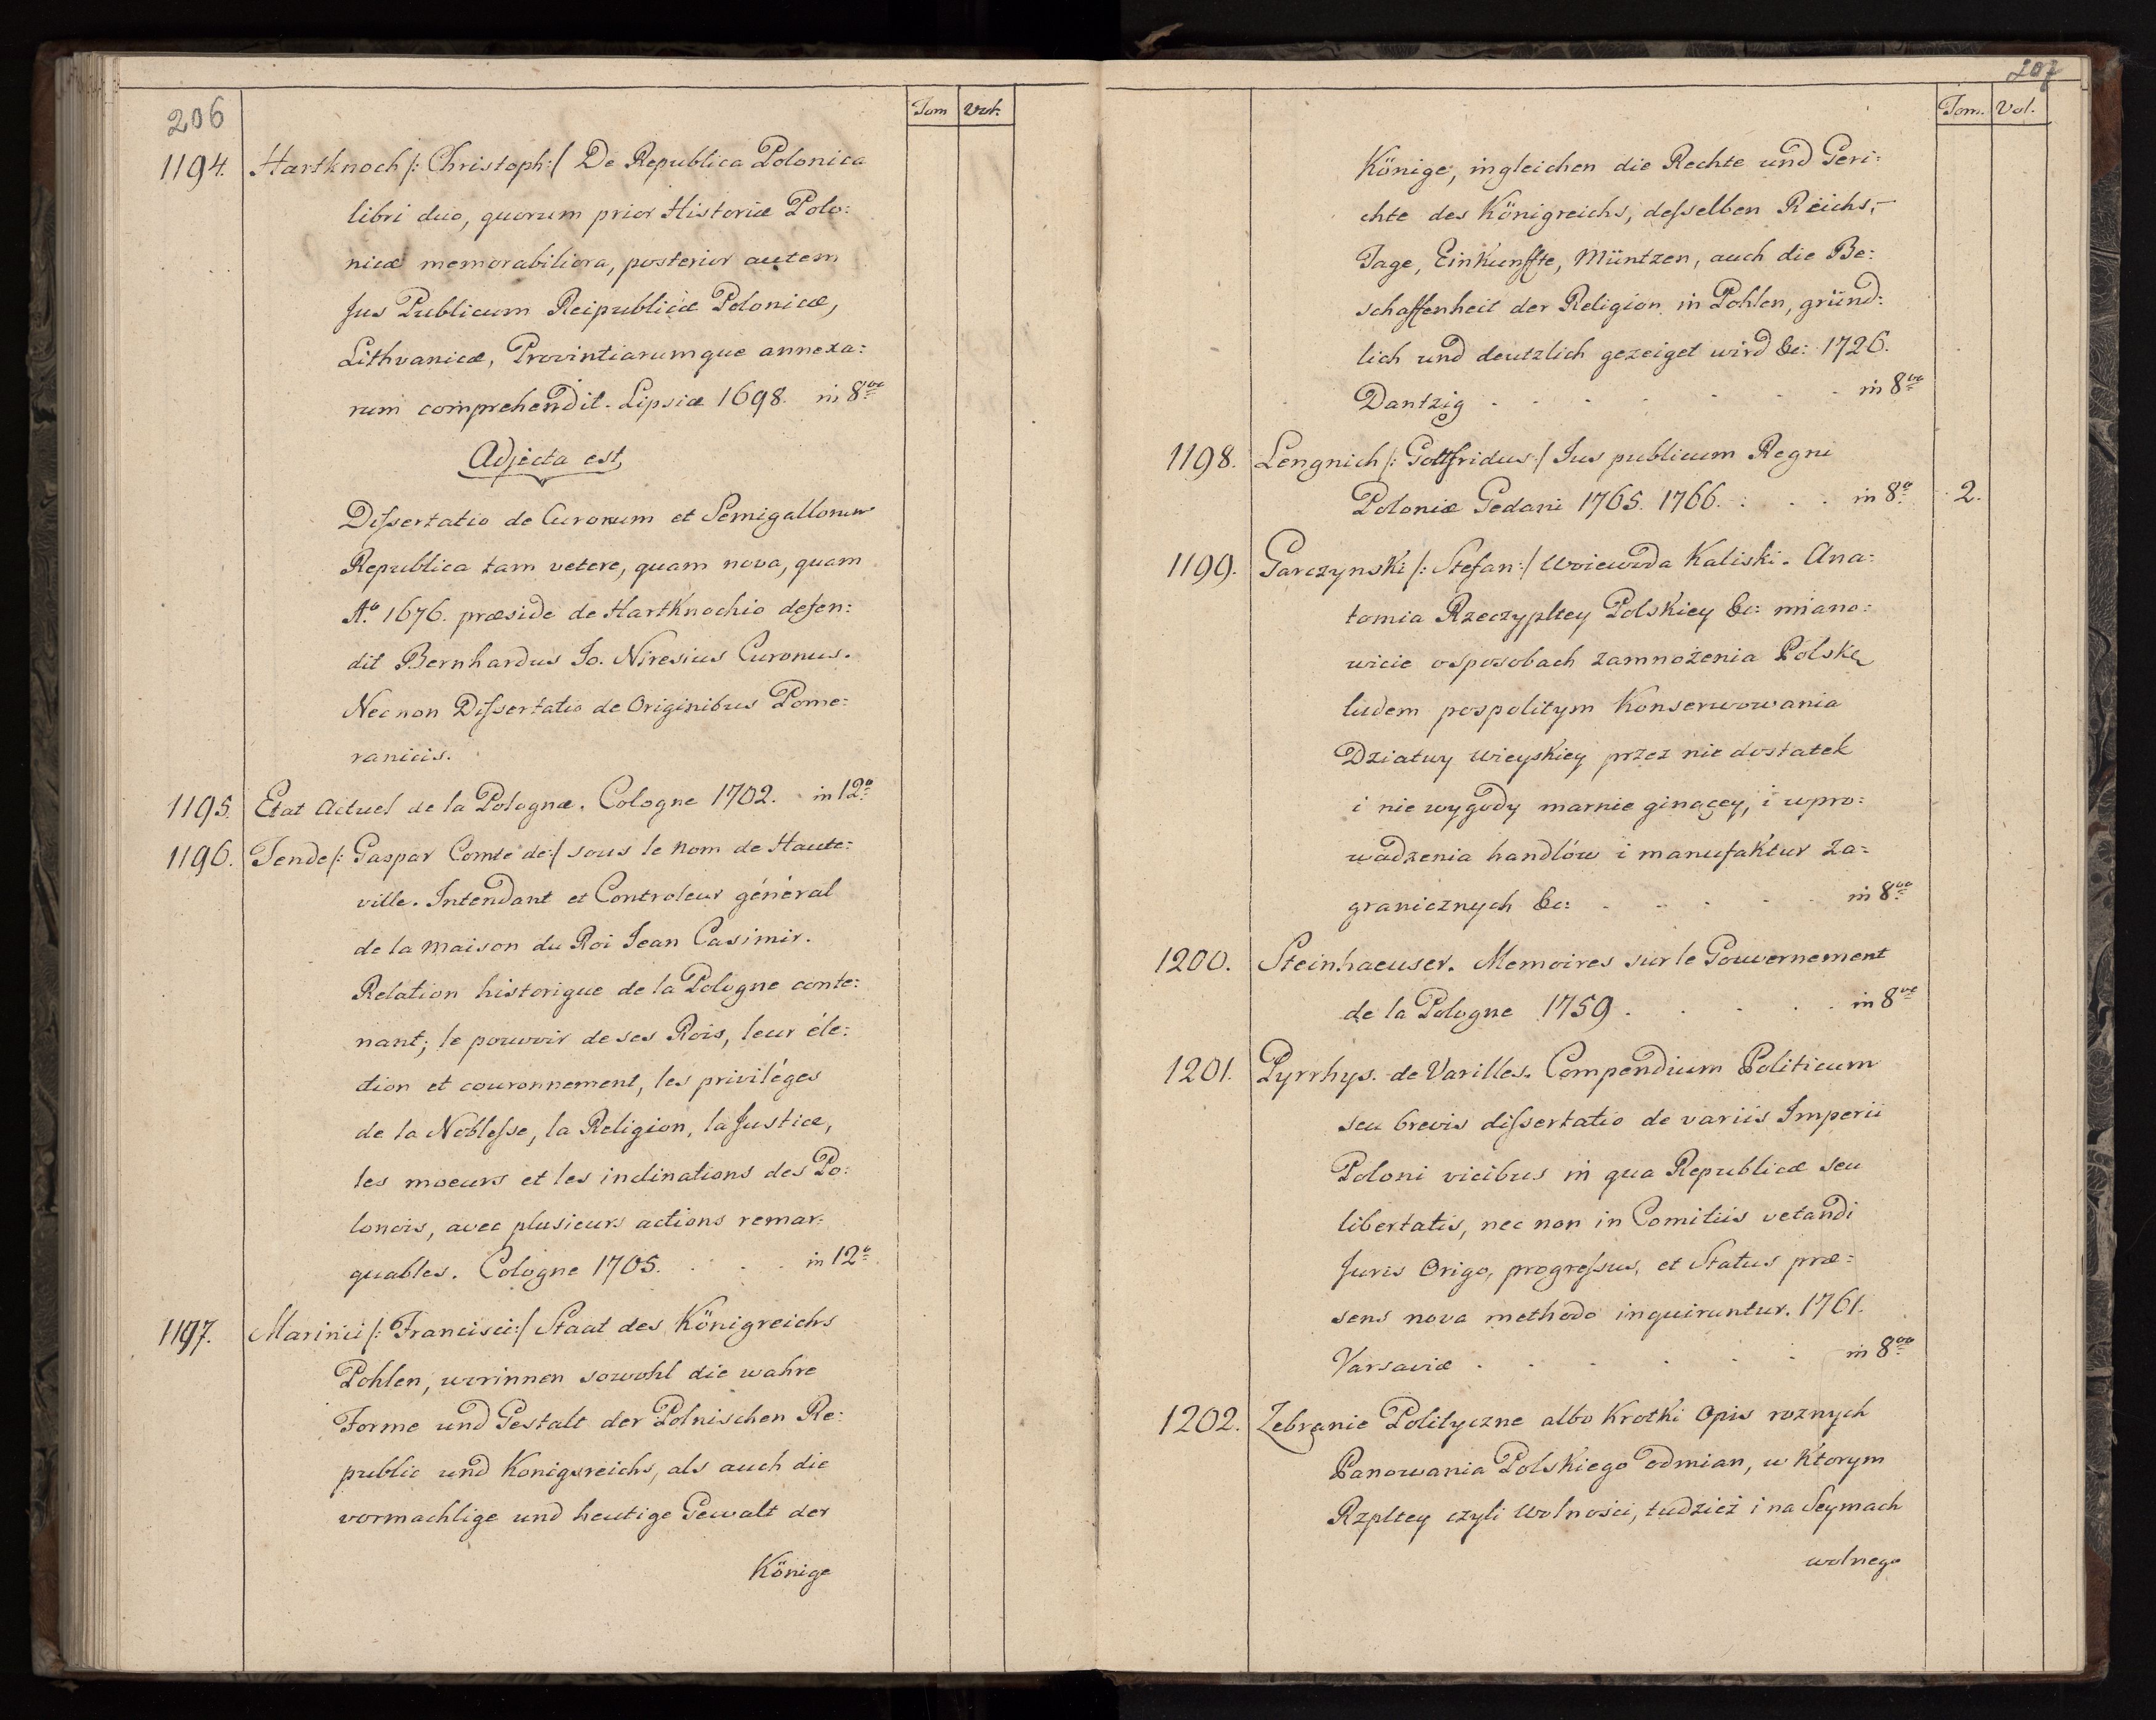 206
Tom Vol.
1194. Hartknoch /: Christoph :/ De Republica Polonica
libri duo, quorum prior Historiæ Polo:
nicæ memorabiliora, posterior autem
Jus Publicum Reipublicæ Polonicæ,
Lithvanicæ, Provintiarumque annexa:
rum comprehendit. Lipsiæ 1698. in 8vo
Adjecta est
Dissertatio de Curonum et Semigallorum
Republica tam vetere, quam nova, quam
Ao. 1676. præside de Hartknochio defen:
dit Bernhardus Jo. Niresius Curonus.
Nec non Dissertatio de Originibus Pome:
ranicis.
1195. Etat Actuel de la Pologne. Cologne 1702. in 12o
1196. Tende /: Gaspar Comte de :/ sous le nom de Haute:
ville. Intendant et Controleur général
de la maison du Roi Jean Casimir.
Relation historique de la Pologne conte:
nant; le pouvoir de ses Rois, leur éle:
ction et couronnement, les privilèges
de la Noblesse, la Religion, la Justice,
les moeurs et les inclinations des Po:
lonois, avec plusieurs actions remar:
quables. Cologne 1705. . . . in 12o
1197. Marinii /: Francisci :/ Staat des Königreichs
Pohlen, worinnen sowohl die wahre
Forme und Gestalt der Polnischen Re:
public und Konigsreichs, als auch die
vormachlige und heutige Gewalt der
Könige
207
Tom. Vol.
Könige, ingleichen die Rechte und Geri:
chte des Königreichs, desselben Reichs,-
Tage, Einkunffte, Müntzen, auch die Be:
schaffenheit der Religion in Pohlen, gründ:
lich und deutzlich gezeiget wird &c: 1726.
Dantzig . . . . . . in 8vo
1198. Lengnich /: Gottfridus :/ Jus publicum Regni
Poloniæ Gedani 1765. 1766. . . . in 8o 2.
1199. Garczynski /: Stefan :/ Woiewoda Kaliski. Ana:
tomia Rzeczypltey Polskiey &c: miano:
wicie osposobach zamnożenia Polskę
ludem pospolitym konserwowania
Dziatwy wieyskiey przez nie dostatek
i nie wygody marnie ginącey, i wpro:
wadzenia handlów i manufaktur za:
granicznych &c: . . . . . in 8vo
1200. Steinhaeuser. Memoires sur le Gouvernement
de la Pologne 1759 . . . . . in 8vo
1201. Pyrrhys. de Varilles. Compendium Politicum
seu brevis dissertatio de variis Imperii
Poloni vicibus in qua Republicæ seu
libertatis, nec non in Comitiis vetandi
Juris Origo, progressus, et Status præ:
sens nova methodo inquiruntur. 1761.
Varsaviæ . . . . . . in 8vo
1202. Zebranie Polityczne albo Krotki Opis roznych
Panowania Polskiego odmian, w Ktorym
Rzpltey czyli Wolnosci, tudzież i na Seymach
wolnego